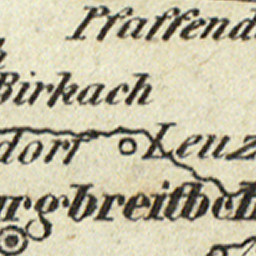 Pfaffend
Birkach
dorf
Leuz
rgbreitbch